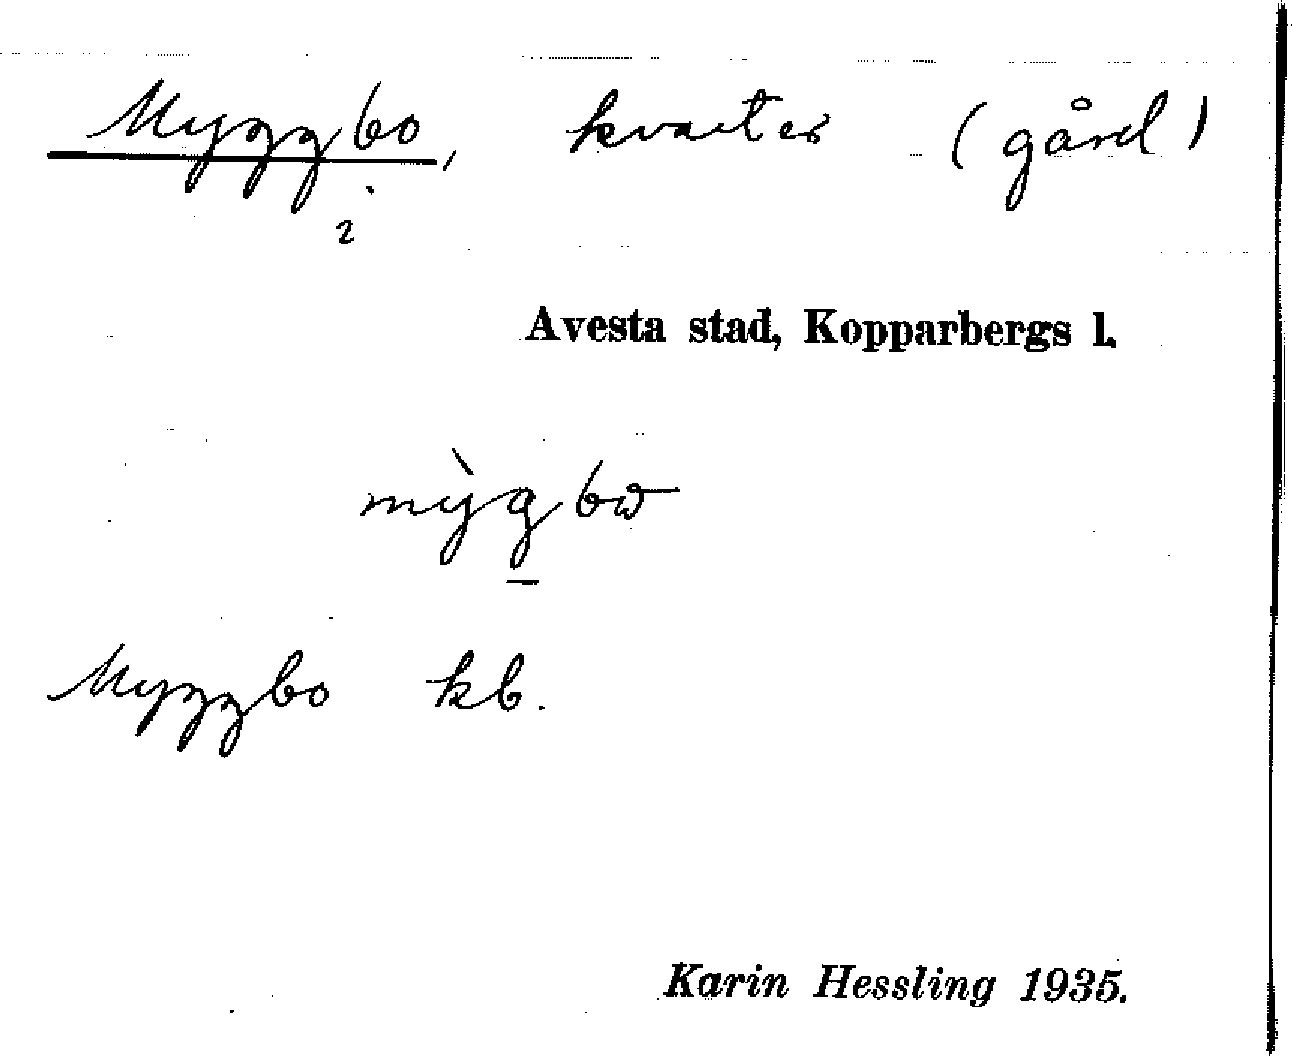 Myggbo, kvarter (gård)
2
Avesta stad, Kopparbergs l.
mỳgbω
Myggbo kb.
Karin Hessling 1935.